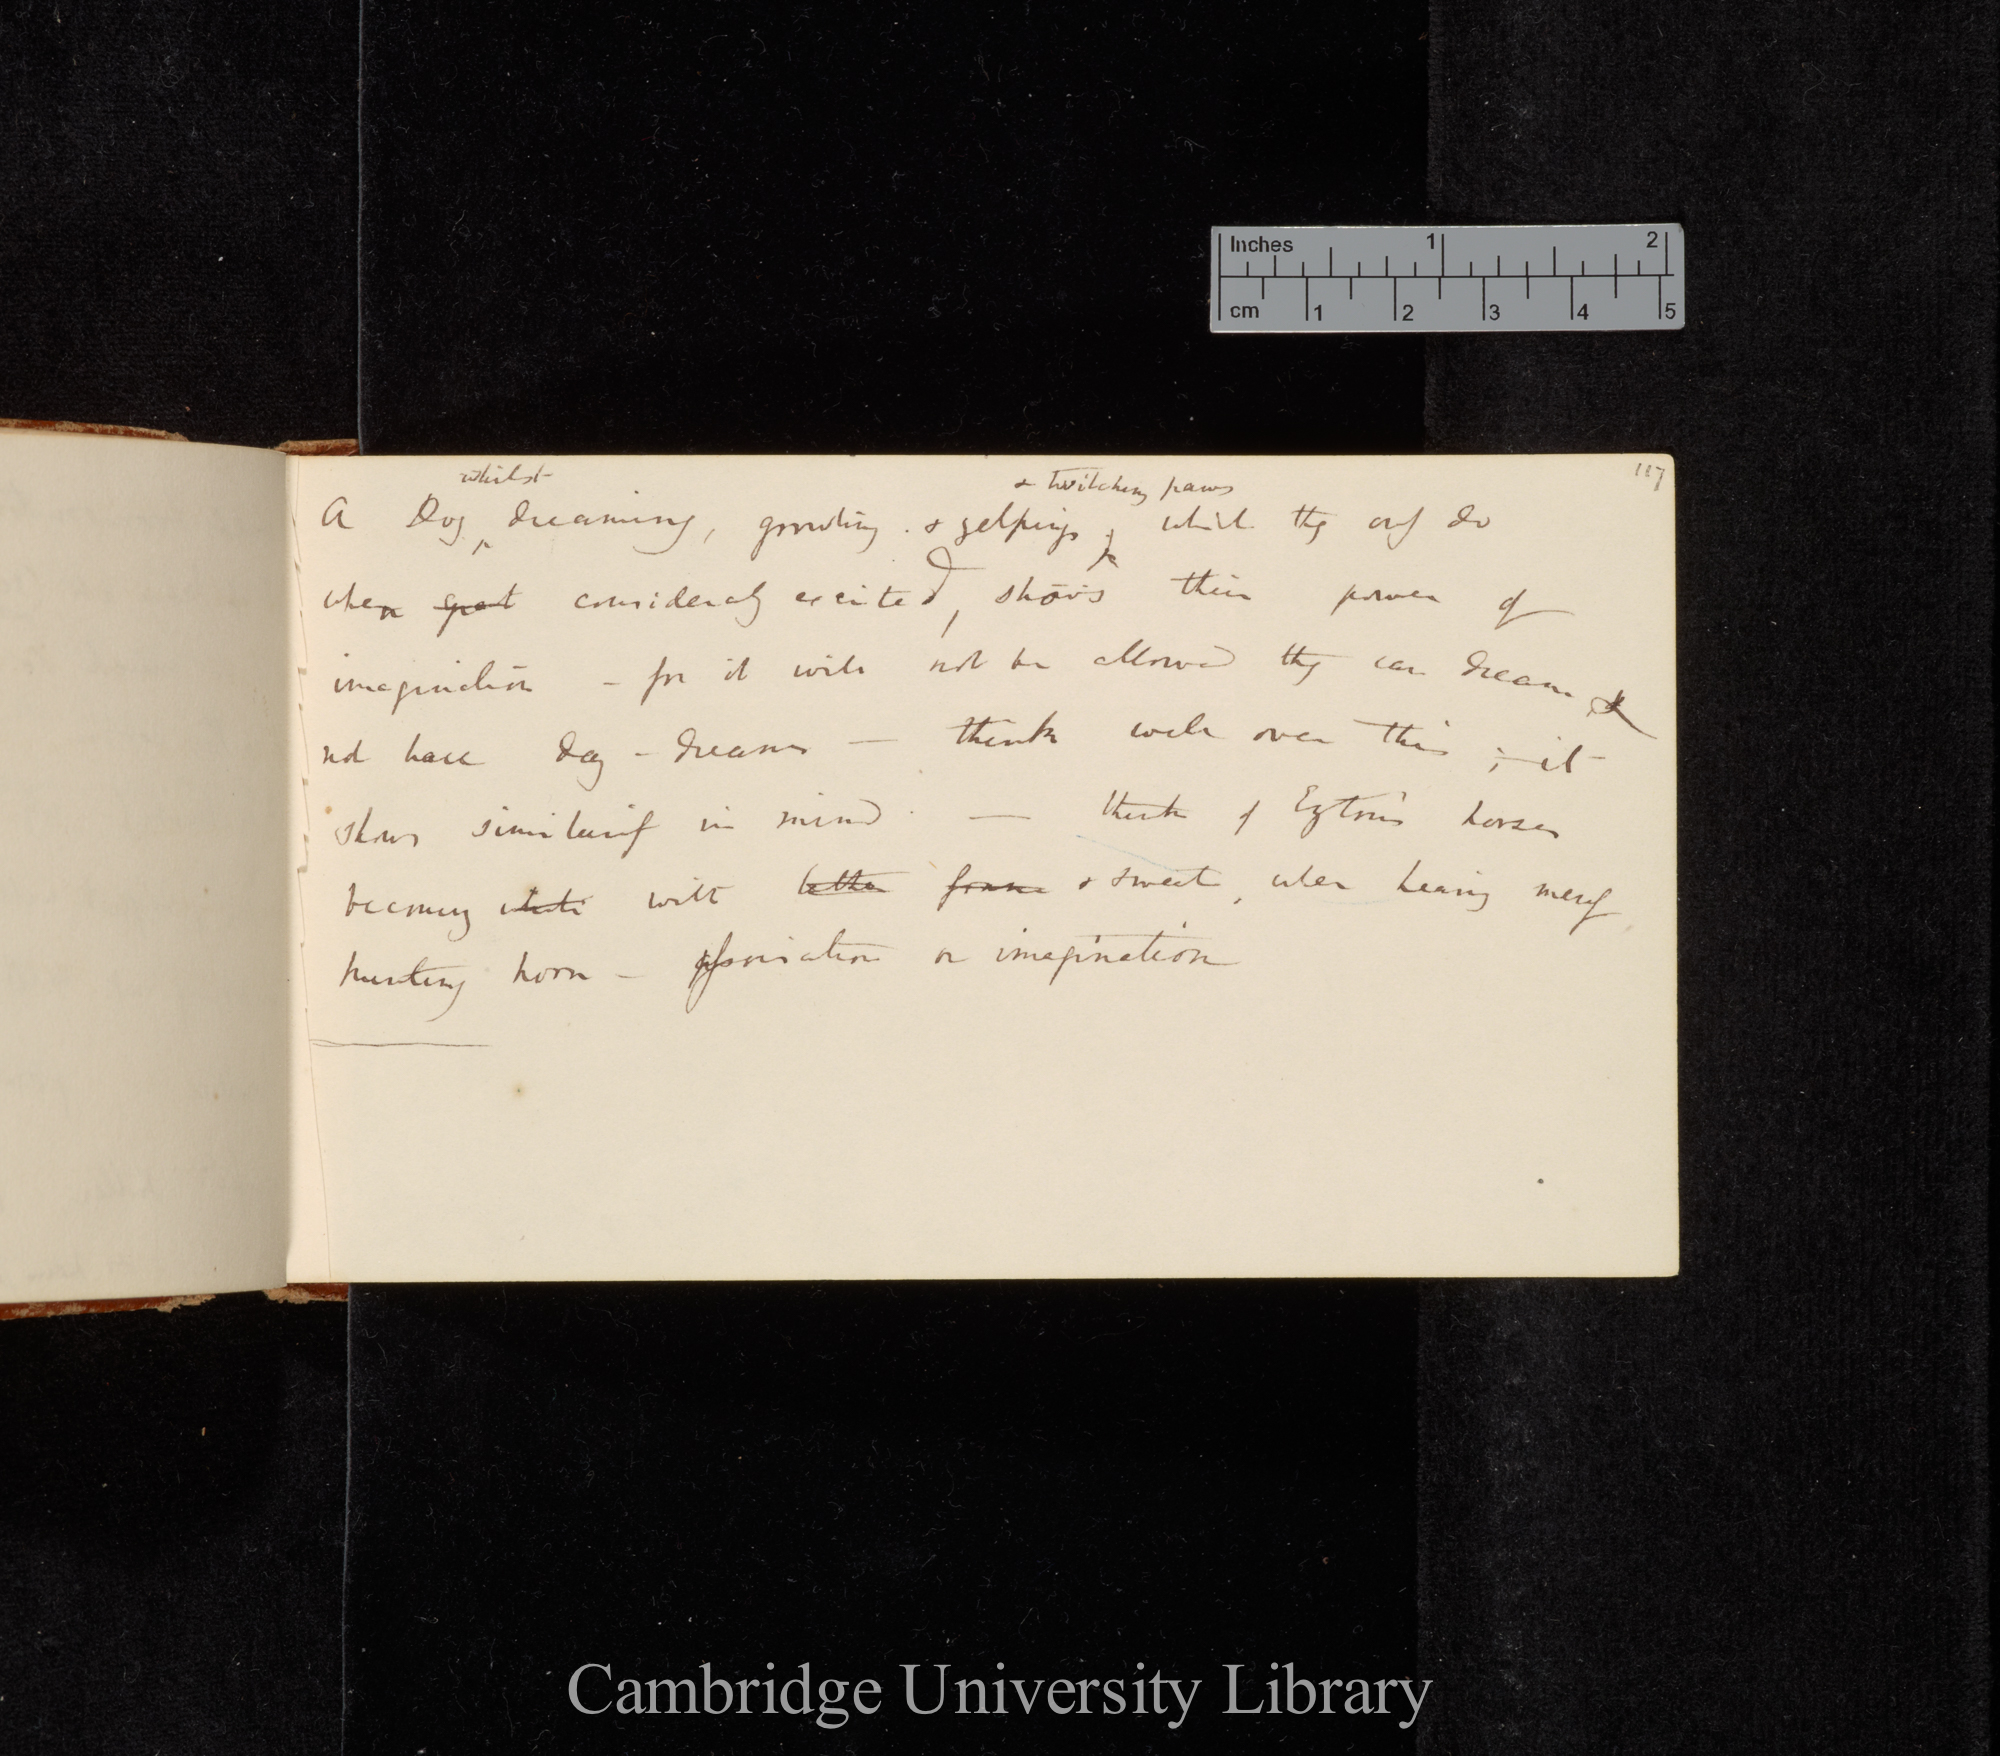 Inches 1 2
cm 1 2 3 4 5
117
whilst & twitching paws
A Dog, dreaming, growling & yelpings, which they only do
when great considerably excited, shows their power of
imagination – for it will not be allowed they can dream &
not have day-dreams — think well over this; – it
shows similarity in mind. — think of Eyton's horses
becoming white with lather & sweat, when hearing merely
hunting horn – association or imagination
Cambridge University Library